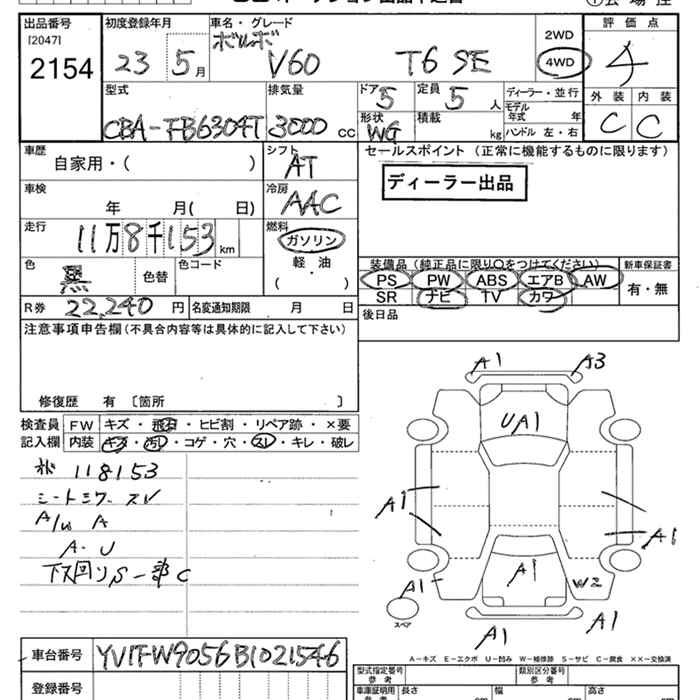 出品番号
[2047]
2154
初度登録年月
23 5月
車名・グレード
ボルボ
V60 T6 SE
2WD
4WD
評価点
4
外装 内装
C C
型式
CBA-FB6304T
排気量
3000 cc
ドア 5
定員 5 人
形状 WG
積載 kg
ディーラー・並行
モデル年式 年
ハンドル 左・右
車歴
自家用・( )
シフト
AT
セールスポイント (正常に機能するものに限ります)
ディーラー出品
車検
年 月( 日)
冷房
AAC
走行
11万8千153km
燃料
ガソリン
軽・油
( )
色
黒 色替
色コード
装備品(純正品に限り○をつけてください)
PS PW ABS エアB AW
SR ナビ TV カワ
新車保証書
有・無
R券 22,240 円
名変通知期限 月 日
後日品
注意事項申告欄(不具合内容等は具体的に記入して下さい)
修復歴 有 〔箇所 〕
検査員記入欄
FW キズ・飛石・ヒビ割・リペア跡・×要
内装 キズ・汚レ・コゲ・穴・スレ・キレ・破レ
118153
シートシワースレ
A/w A
A・U
下回りS一部C
A1 A3
UA1
A1
A1
A1
A1 W2
A1
A1
スペア
A-キズ E-エクボ U-凹み W-補修跡 S-サビ C-腐食 ××-交換済
車台番号
YV1FW9056B1021546
登録番号
型式指定番号
参考
類別区分番号
参考
車庫証明用
参考
長さ cm
幅 cm
高さ cm